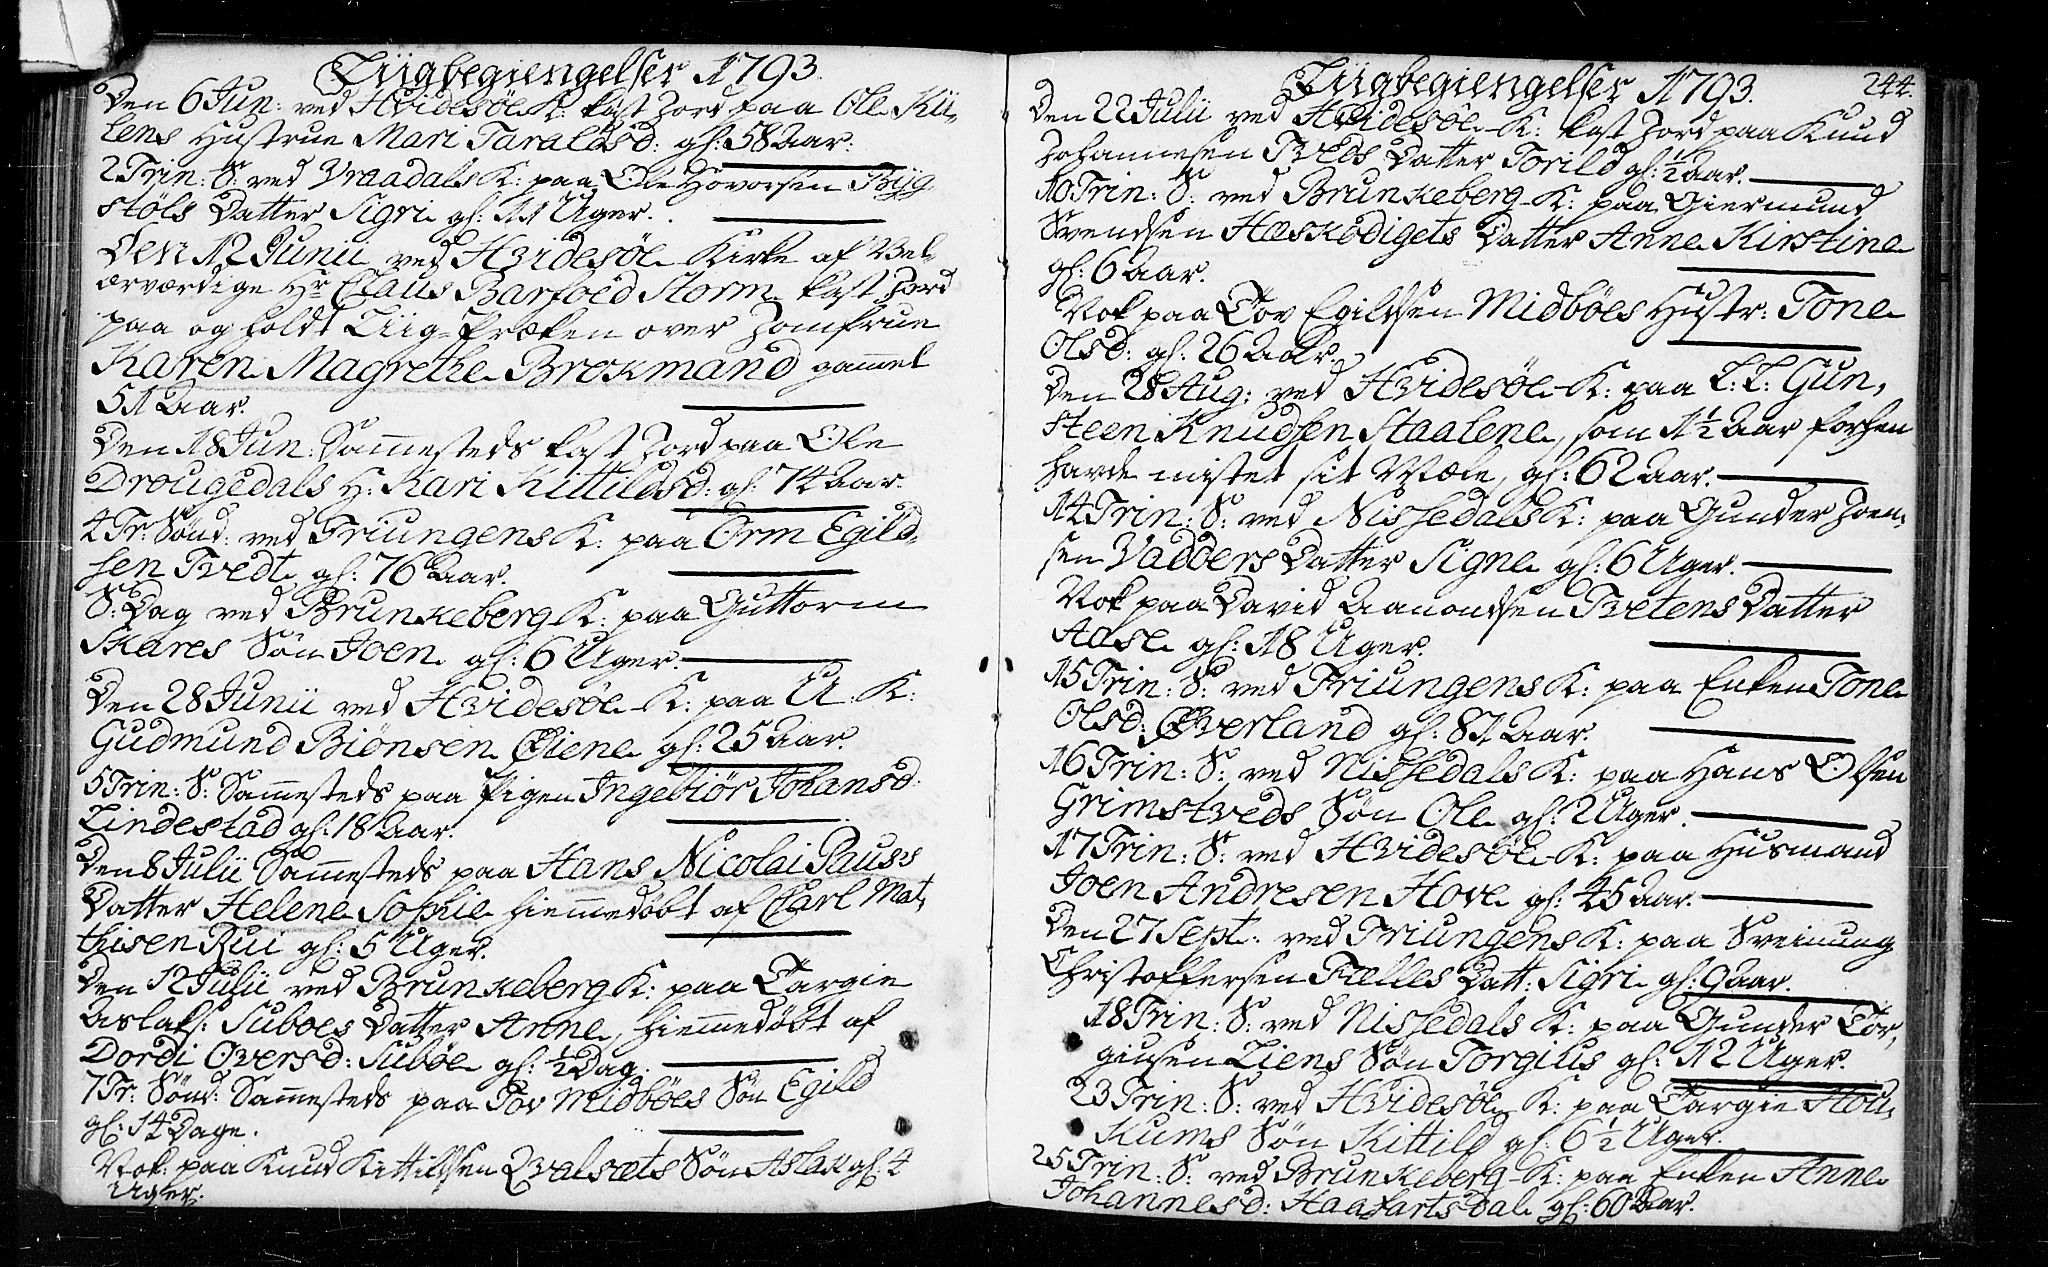 Liigbegiengelser 1793.
Den 6 Jun: ved Hvidesøe K: kast Jord paa Ole Kii-
lens Hustrue Mari Taraldsd: gl: 58 Aar.
2 Trin: S: ved Vraadals K: paa Ole Hovorsen Byg
støls Datter Sigri gl: 11 Uger.
Den 12 Junii ved Hvidesøe Kirke af Vel-
ærværdige Hr Claus Barfoed Storm kast Jord
paa og holdt Liig-Præken over Jomfrue
Karen Magrethe Brokmand gammel
51 Aar.
Den 18 Jun: Sammesteds kast Jord paa Ole
Drougedals H: Kari Kittilds d: gl: 74 Aar.
4 Tr: Sønd: ved Triungens K: paa Orm Egild-
sen Tvedt gl: 76 Aar.
S: Dag ved Brunkeberg K: paa Guttorm
Skares Søn Joen gl: 6 Uger.
Den 28 Junii ved Hvidesøe K: paa U: K:
Gudmund Biønsen Øiene gl: 25 Aar.
5 Trin: S: Sammesteds paa Pigen Ingebiør Johansd:
Lindestad gl: 18 Aar.
Den 8 Julii Sammesteds paa Hans Nicolai Pauss
Datter Helene Sophie hiemmedøbt af Carl Mat,
thisen Rui gl: 5 Uger.
Den 12 Julii ved Brunkeberg K: paa Targie
Aslaks: Suboes Datter Anne, hiemmedøbt af
Dordi Oversd: Subøe gl: ½ Dag.
7 Tr: Sønd: Sammesteds paa Tov Midbøes Søn Egild
gl: 14 Dage.
Nok: paa Knud Kittilsen Qvalsæts Søn Aslak gl: 4
Uger.
Liigbegiengelser 1793.
244.
Den 22 Julii ved Hvidesøe K: kast Jord paa Knud
Johannesen Tveds Datter Torild gl: ½ Aar.
10 Trin: S: ved Brunkeberg K: paa Giermund
Svendsen Hæskødigets Datter Anne Kirstine
gl: 6 Aar.
Nok paa Tov Egildsen Midbøes Hustr: Tone
Olsd: gl: 26 Aar.
Den 28 Aug: ved Hvidesøe K: paa L: L: Gun,
steen Knudsen Staalene, som 1½ Aar forhen
havde mistet sit Mæle, gl: 62 Aar.
14 Trin: S: ved Nissedals K: paa Gunder Joen,
sen Vadders Datter Signe gl: 6 Uger.
Nok paa David Aanondsen Tvetens Datter
Aase gl: 18 Uger.
15 Trin: S: ved Triungens K: paa Enken Tone
Olsd: Øverland gl: 81 Aar.
16 Trin: S: ved Nissedals K: paa Hans Olsen
Grimstveds Søn Ole gl: 2 Uger.
17 Trin: S: ved Hvidesøe K: paa Husmand
Joen Andresen Hove gl: 45 Aar.
Den 27 Sept: ved Triungens K: paa Sveinung
Christoffersen Fælles Datt: Sigri gl: 9 aar.
18 Trin: S: ved Nissedals K: paa Gunder Tor,
giusen Liens Søn Torgius gl: 12 Uger.
23 Trin: S: ved Hvidesøe K: paa Targie Hou,
kums Søn Kittild gl: 6½ Uger.
25 Trin: S: ved Brunkeberg K: paa Enken Anne
Johannesd: Haatarts Dal gl: 60 Aar.